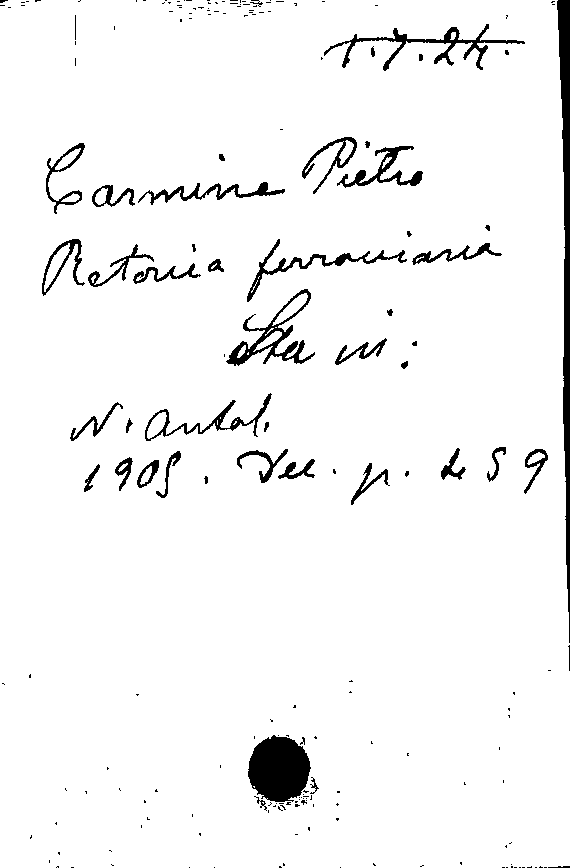 1.7.24.
Carmine Pietro
Retorica ferroviaria
Sta in:
N. Antol.
1905. Dec. p. 459